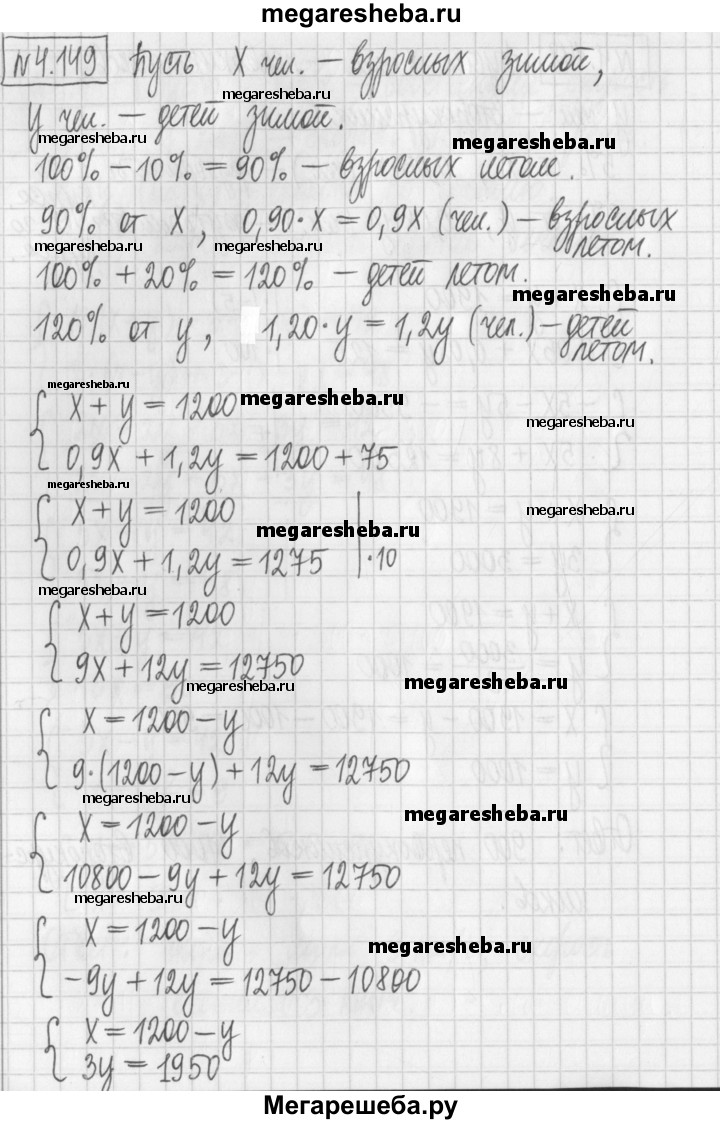 megaresheba.ru
№4.149 Пусть x чел. – взрослых зимой,
megaresheba.ru
y чел. – детей зимой.
megaresheba.ru
megaresheba.ru
100% – 10% = 90% – взрослых летом.
90% от x, 0,90·x = 0,9x (чел.) – взрослых летом.
megaresheba.ru
megaresheba.ru
100% + 20% = 120% – детей летом.
megaresheba.ru
120% от y, 1,20·y = 1,2y (чел.) – детей летом.
megaresheba.ru
x + y = 1200
megaresheba.ru
megaresheba.ru
0,9x + 1,2y = 1200 + 75
megaresheba.ru
x + y = 1200
megaresheba.ru
megaresheba.ru
0,9x + 1,2y = 1275 |·10
megaresheba.ru
x + y = 1200
9x + 12y = 12750
megaresheba.ru
megaresheba.ru
x = 1200 – y
9·(1200 – y) + 12y = 12750
megaresheba.ru
megaresheba.ru
x = 1200 – y
10800 – 9y + 12y = 12750
megaresheba.ru
x = 1200 – y
megaresheba.ru
–9y + 12y = 12750 – 10800
x = 1200 – y
3y = 1950
Мегарешеба.ру